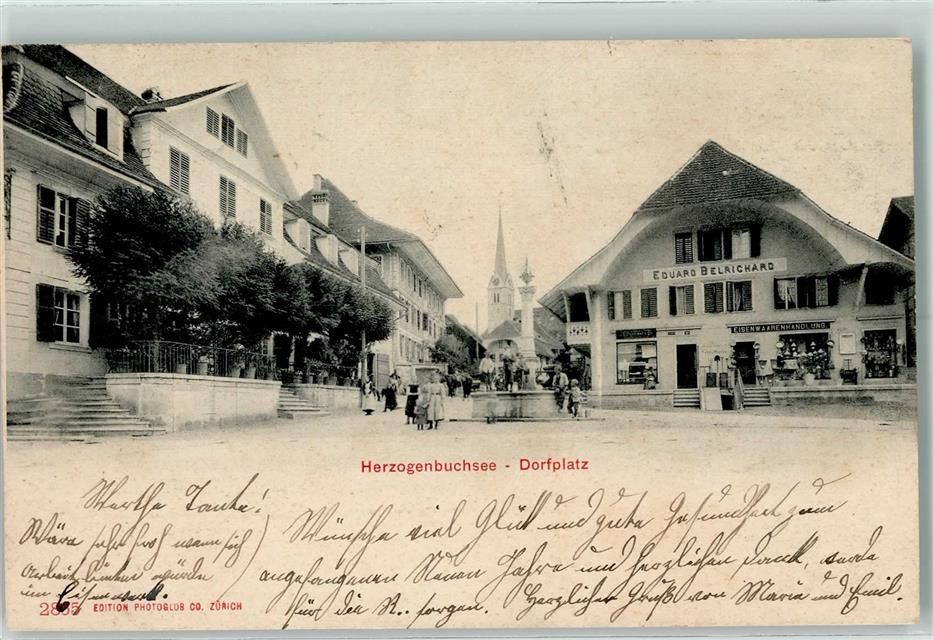 EDUARD BELRICHARD
EISENWAARENHANDLUNG
Herzogenbuchsee - Dorfplatz
Werthe Tante!
Wünsche viel Glück und gute Gesundheit zum
angefangenen Neuen Jahre und herzlichen Dank, werde
für die R.. sorgen. Herzlicher Gruß von Maria und Emil.
Wäre sehr froh wenn sich
Arbeit finden würde
im
2865 EDITION PHOTOGLOB CO. ZÜRICH